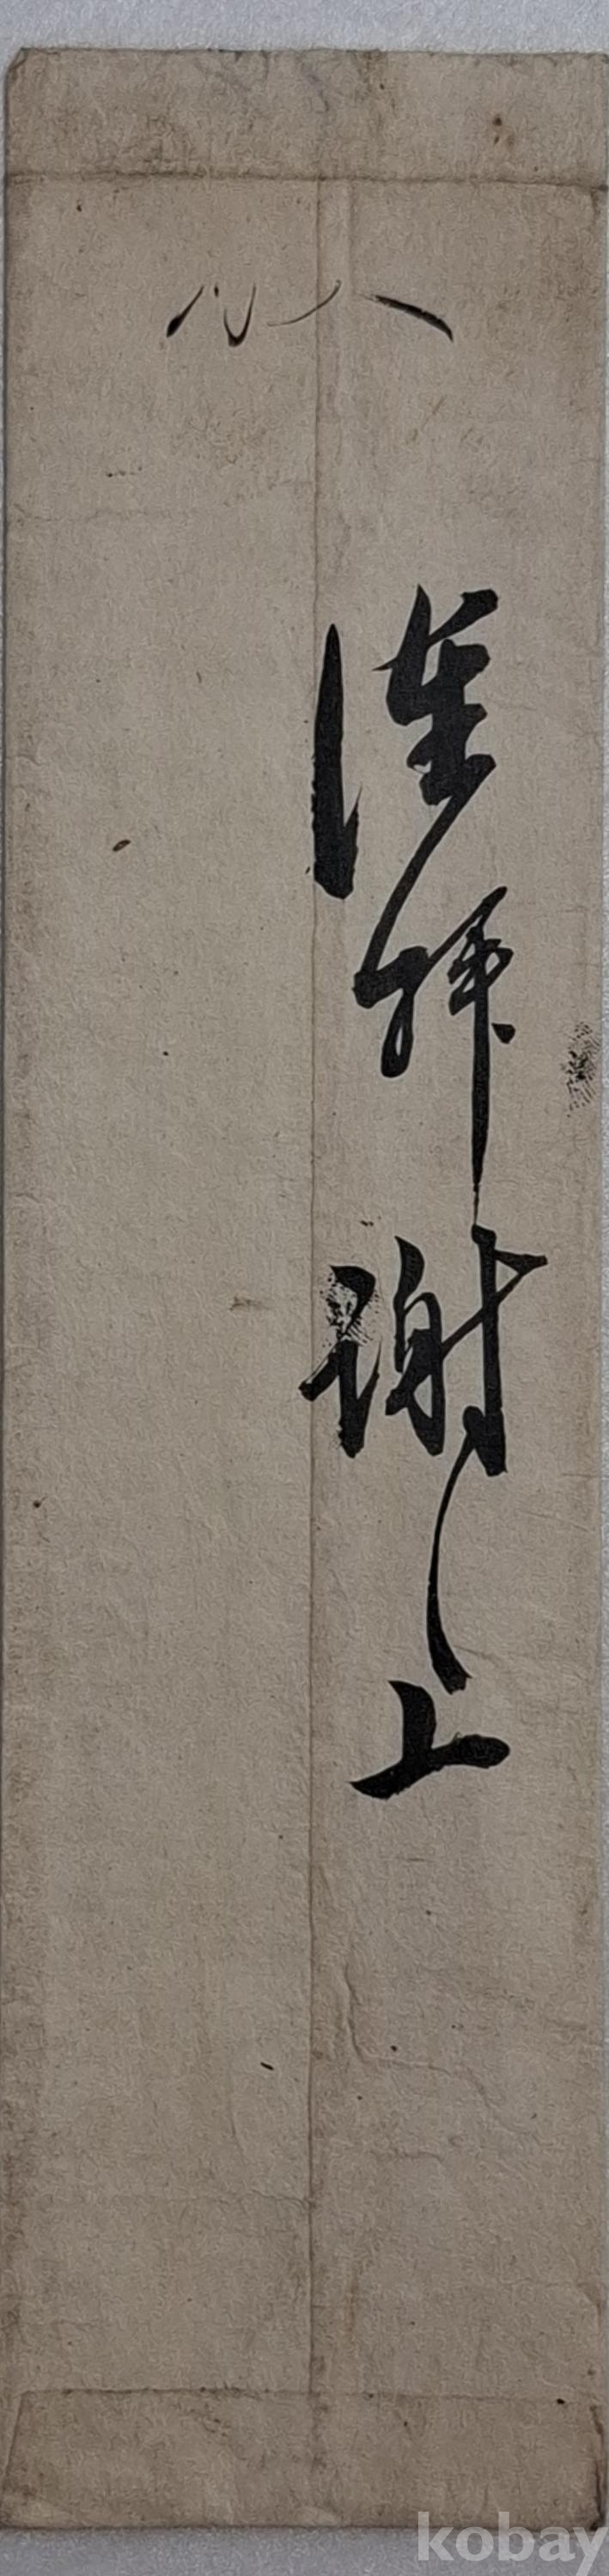 謹拜謝上
kobay